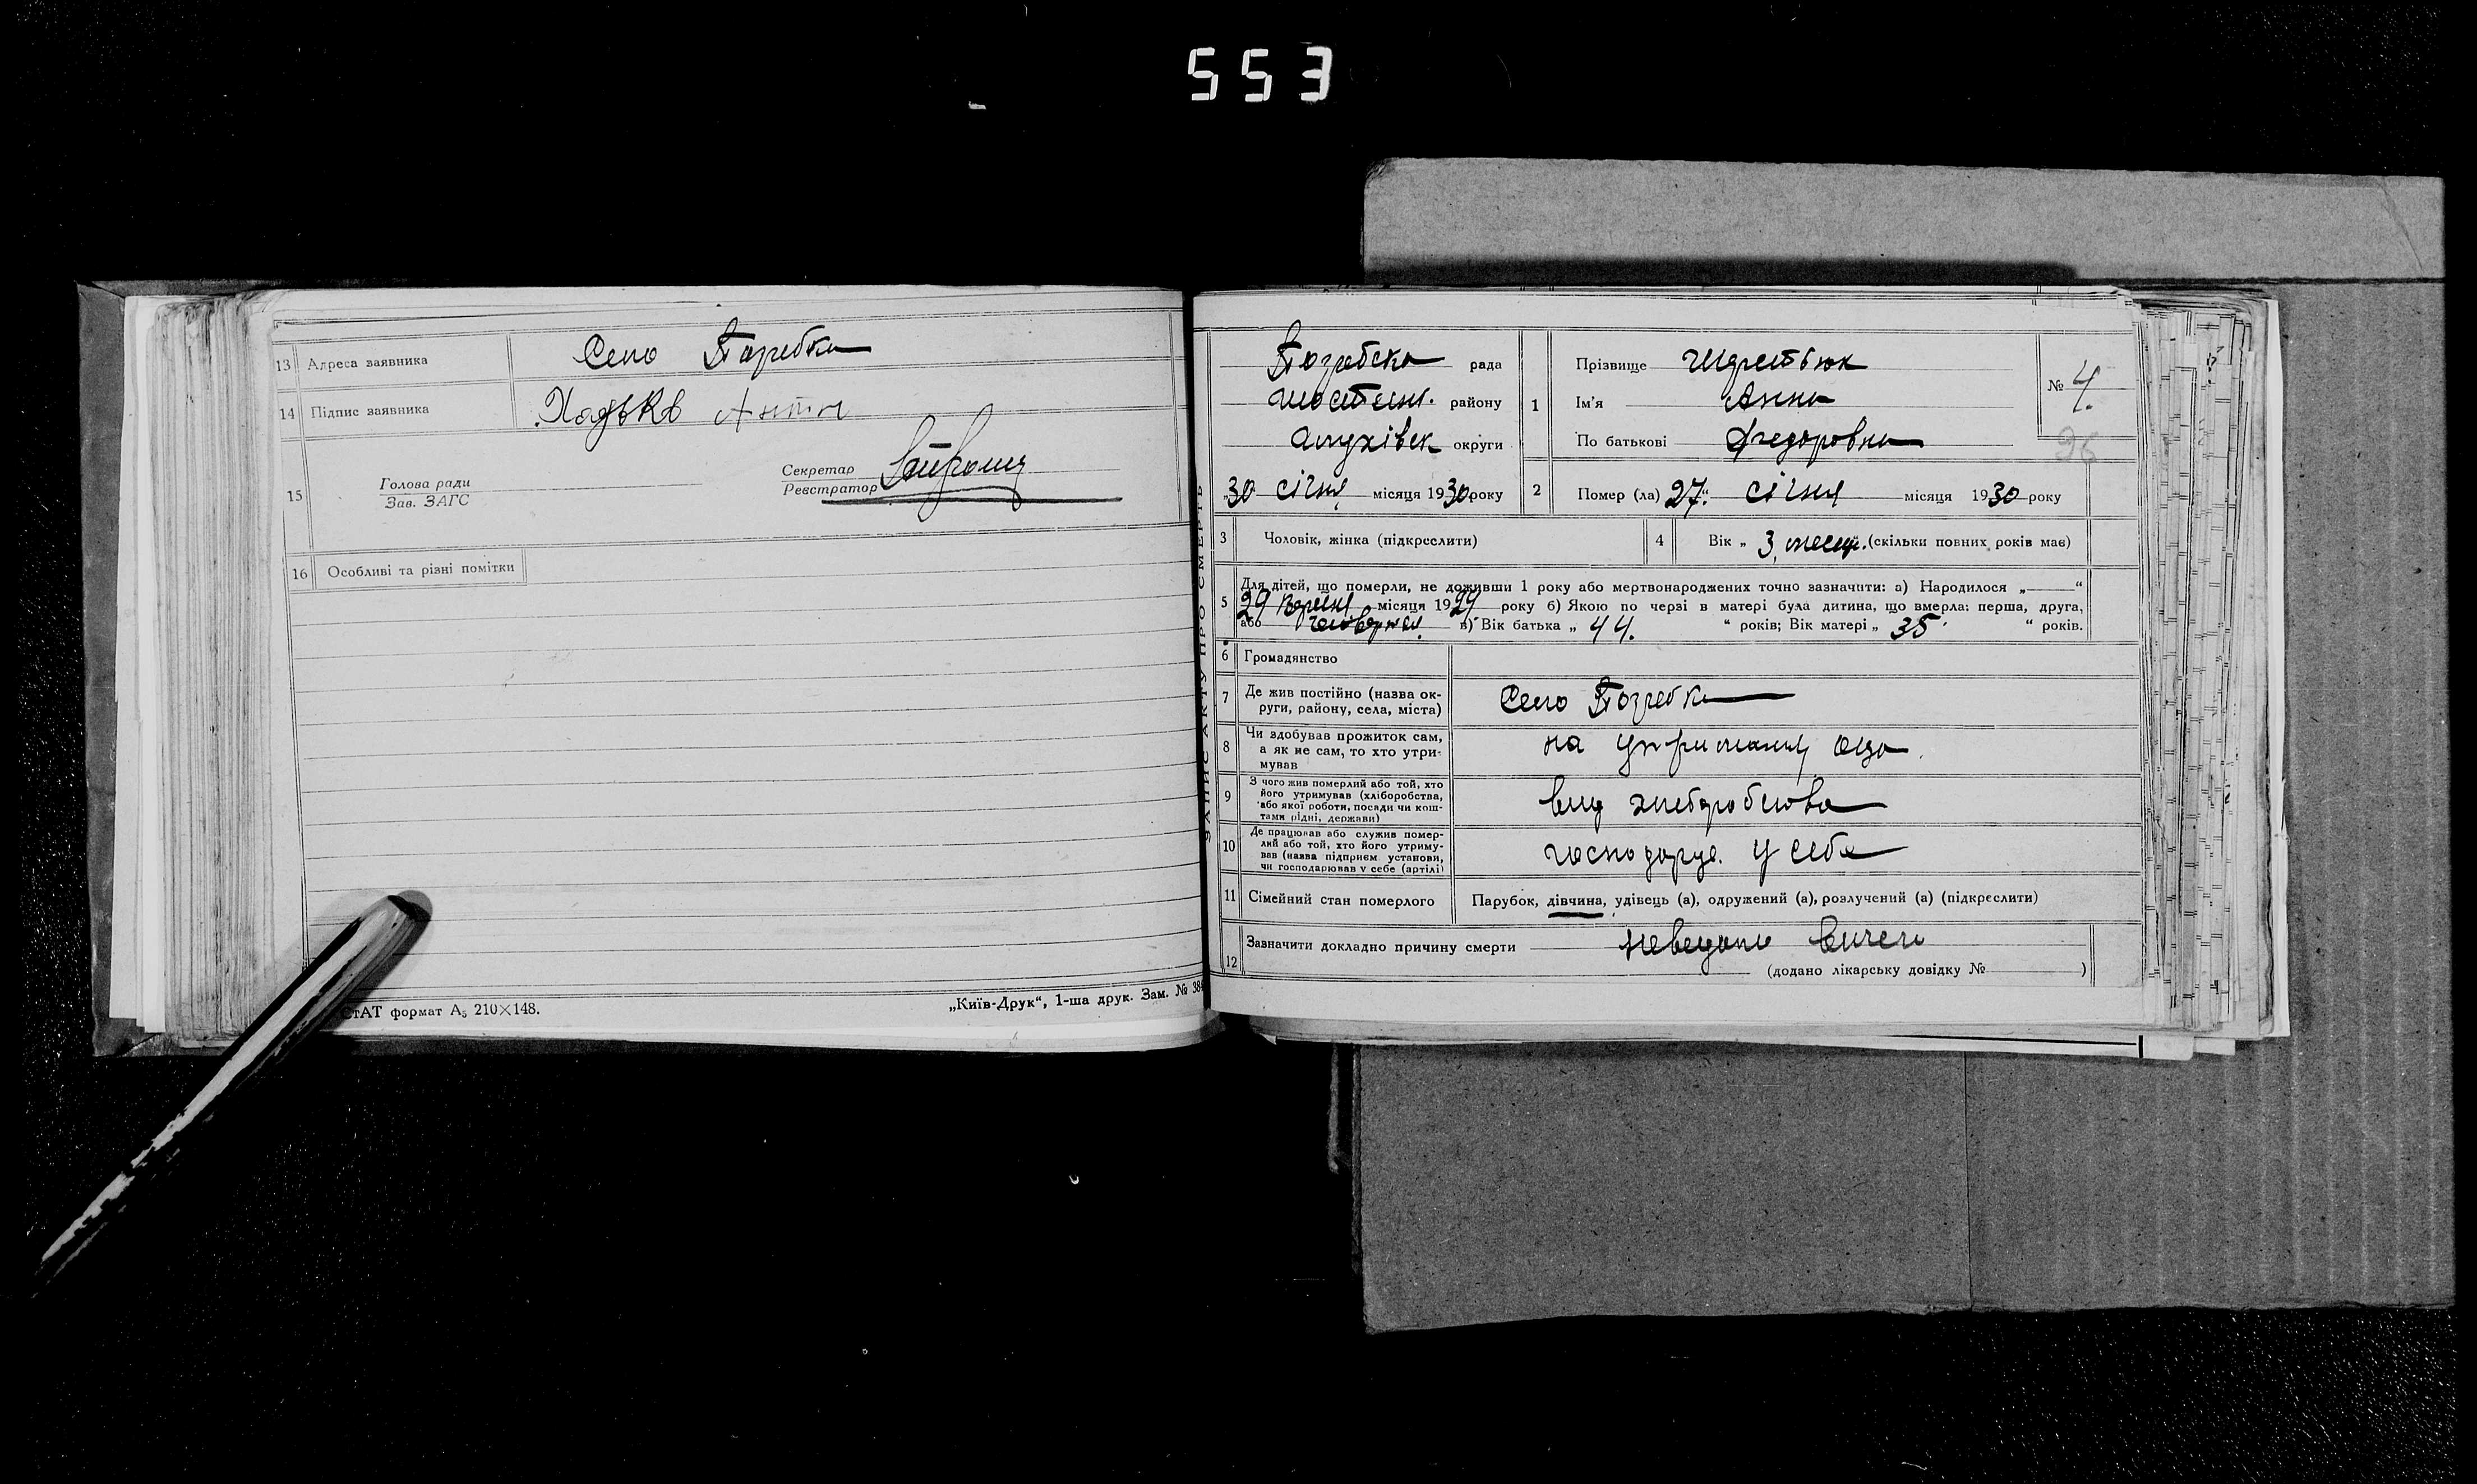 553
13 Адреса заявника Село Погребки
14 Підпис заявника Хадьков Антін
15 Голова ради
Зав. ЗАГС
Секретар
Реєстратор
16 Особливі та різні помітки
СтАТ формат А₅ 210×148.
„Київ-Друк“, 1-ша друк. Зам. № 384
ЗАПИС АКТУ ПРО СМЕРТЬ
Погребска рада
Шостенс. району
Глухівск округи
„30 січня місяця 1930 року
1 Прізвище
Ім'я Анна
По батькові Федоровна
№ 4.
96
2 Помер (ла) 27“ січня місяця 1930 року
3 Чоловік, жінка (підкреслити)
4 Вік „ 3 месяц. (скільки повних років має)
5 Для дітей, що померли, не доживши 1 року або мертвонароджених точно зазначити: а) Народилося „ “
29 Вересня місяця 1929 року б) Якою по черзі в матері була дитина, що вмерла: перша, друга,
або в) Вік батька „ 44. “ років; Вік матері „ 35 “ років.
6 Громадянство
7 Де жив постійно (назва ок-
руги, району, села, міста) Село Погребки
8 Чи здобував прожиток сам,
а як не сам, то хто утри-
мував на утриманні оца.
9 З чого жив померлий або той, хто
його утримував (хліборобства,
або якої роботи, посади чи кош-
тами рідні, держави) від хлеборобства
10 Де працював або служив помер-
лий або той, хто його утриму-
вав (назва підприєм. установи,
чи господарював у себе (артілі) господарує. у себе
11 Сімейний стан померлого Парубок, дівчина, удівець (а), одружений (а), розлучений (а) (підкреслити)
12 Зазначити докладно причину смерти
(додано лікарську довідку № )